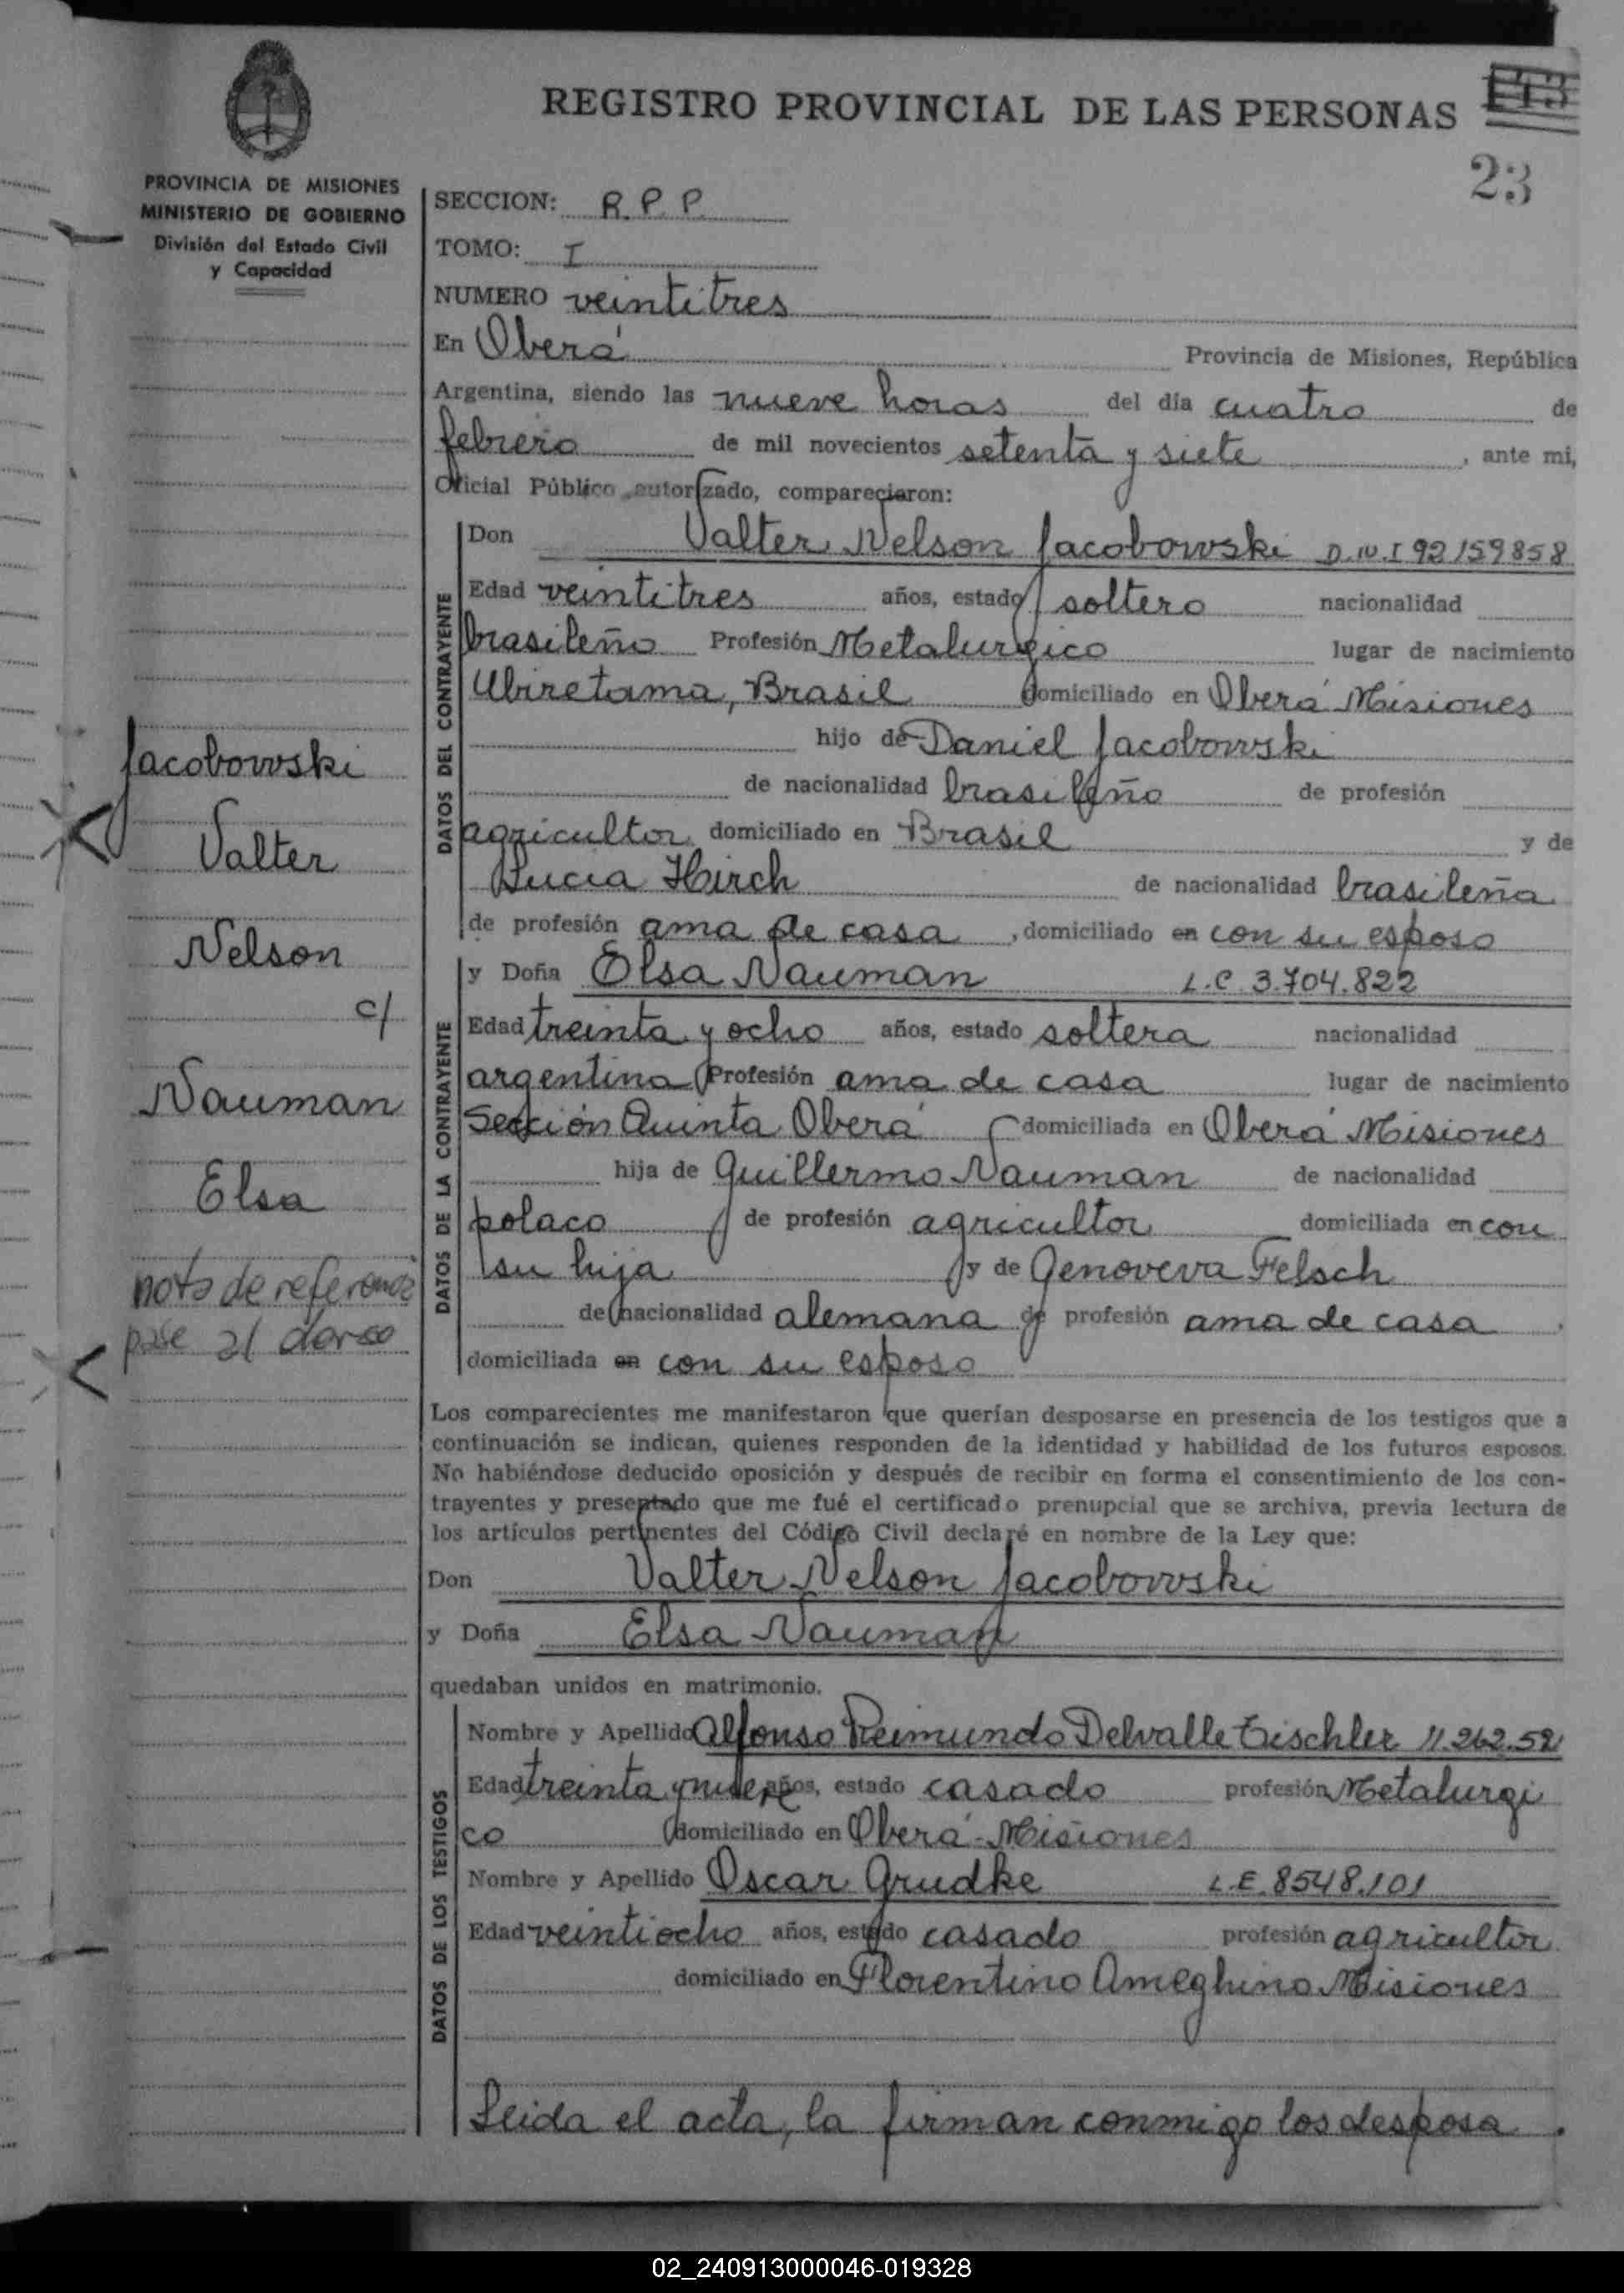 REGISTRO PROVINCIAL DE LAS PERSONAS
23
PROVINCIA DE MISIONES
MINISTERIO DE GOBIERNO
División del Estado Civil
y Capacidad
SECCION: R.P.P
TOMO: I
NUMERO veintitres
En Oberá Provincia de Misiones, República
Argentina, siendo las nueve horas del día cuatro de
febrero de mil novecientos setenta y siete, ante mi,
Oficial Público autorizado, comparecieron:
DATOS DEL CONTRAYENTE
Don Valter Nelson Jacobowski D.N.I 92159858
Edad veintitres años, estado soltero nacionalidad
brasileño Profesión Metalurgico lugar de nacimiento
Ubiretama, Brasil domiciliado en Oberá Misiones
hijo de Daniel Jacobowski
de nacionalidad brasileño de profesión
agricultor domiciliado en Brasil y de
Lucia Hirch de nacionalidad brasileña
de profesión ama de casa, domiciliado en con su esposo
DATOS DE LA CONTRAYENTE
y Doña Elsa Nauman L.C. 3.704.822
Edad treinta y ocho años, estado soltera nacionalidad
argentina Profesión ama de casa lugar de nacimiento
Sección Quinta Oberá domiciliada en Oberá Misiones
hija de Guillermo Nauman de nacionalidad
polaco de profesión agricultor domiciliada en con
su hija y de Genoveva Felsch
de nacionalidad alemana de profesión ama de casa.
domiciliada en con su esposo
Jacobowski
Valter
Nelson
c/
Nauman
Elsa
nota de referencia
pase al dorso
Los comparecientes me manifestaron que querían desposarse en presencia de los testigos que a
continuación se indican, quienes responden de la identidad y habilidad de los futuros esposos.
No habiéndose deducido oposición y después de recibir en forma el consentimiento de los con-
trayentes y presentado que me fué el certificado prenupcial que se archiva, previa lectura de
los artículos pertinentes del Código Civil declaré en nombre de la Ley que:
Don Valter Nelson Jacobowski
y Doña Elsa Nauman
quedaban unidos en matrimonio.
DATOS DE LOS TESTIGOS
Nombre y Apellido Alfonso Reimundo Delvalle Tischler 11.262.52
Edad treinta y nueve años, estado casado profesión Metalurgi
co domiciliado en Oberá - Misiones
Nombre y Apellido Oscar Grudke L.E. 8548.101
Edad veintiocho años, estado casado profesión agricultor
domiciliado en Florentino Ameghino Misiones
Leida el acta, la firman conmigo los desposa.
02_240913000046-019328